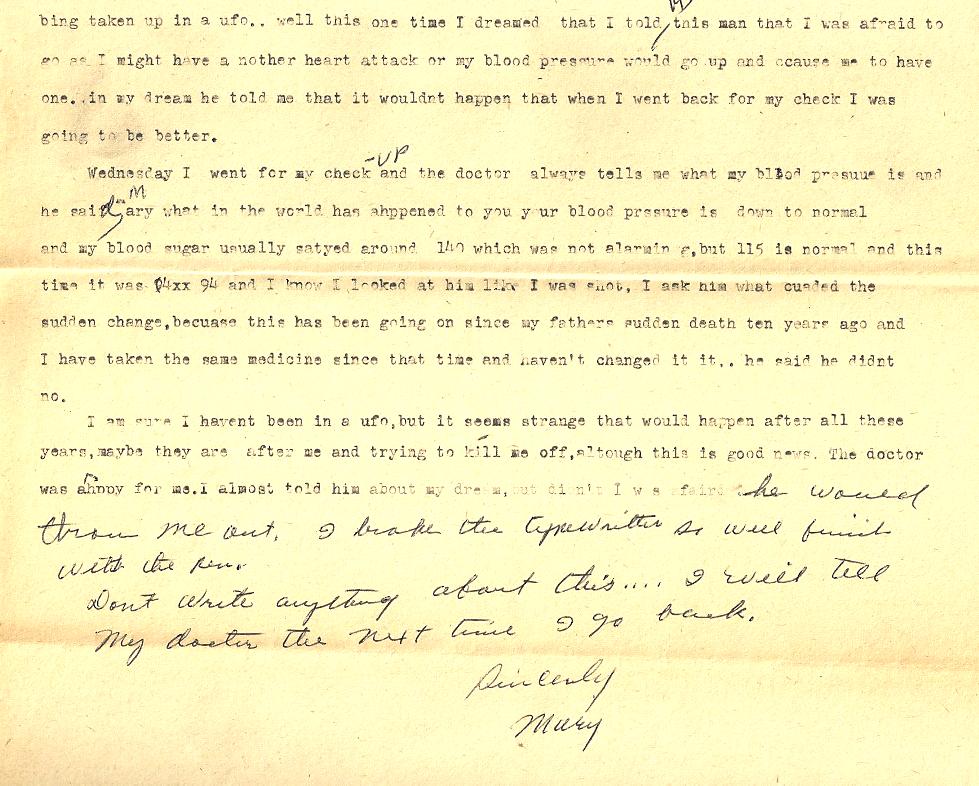 bing taken up in a ufo.. well this one time I dreamed that I told this man that I was afraid to
go as I might have a nother heart attack or my blood pressure would go up and ccause me to have
one..in my dream he told me that it wouldnt happen that when I went back for my check I was
going to be better.
Wednesday I went for my check -UP and the doctor always tells me what my blood prasuue is and
he said Mary what in the world has ahppened to you your blood prssure is down to normal
and my blood sugar usually satyed around 140 which was not alarmin g,but 115 is normal and this
time it was 04xx 94 and I know I looked at him like I was shot, I ask him what cuaded the
sudden change,becuase this has been going on since my fathers sudden death ten years ago and
I have taken the same medicine since that time and haven't changed it it.. he said he didnt
no.
I am sure I havent been in a ufo,but it seems strange that would happen after all these
years,maybe they are after me and trying to kill me off,altough this is good news. The doctor
was ahppy for me.I almost told him about my dream,but didn't I was afaird he would
throw me out. I broke the typewritter so will finish
with the pen.
Don't write anything about this.... I will tell
My doctor the next time I go back.
Sincerly
Mary